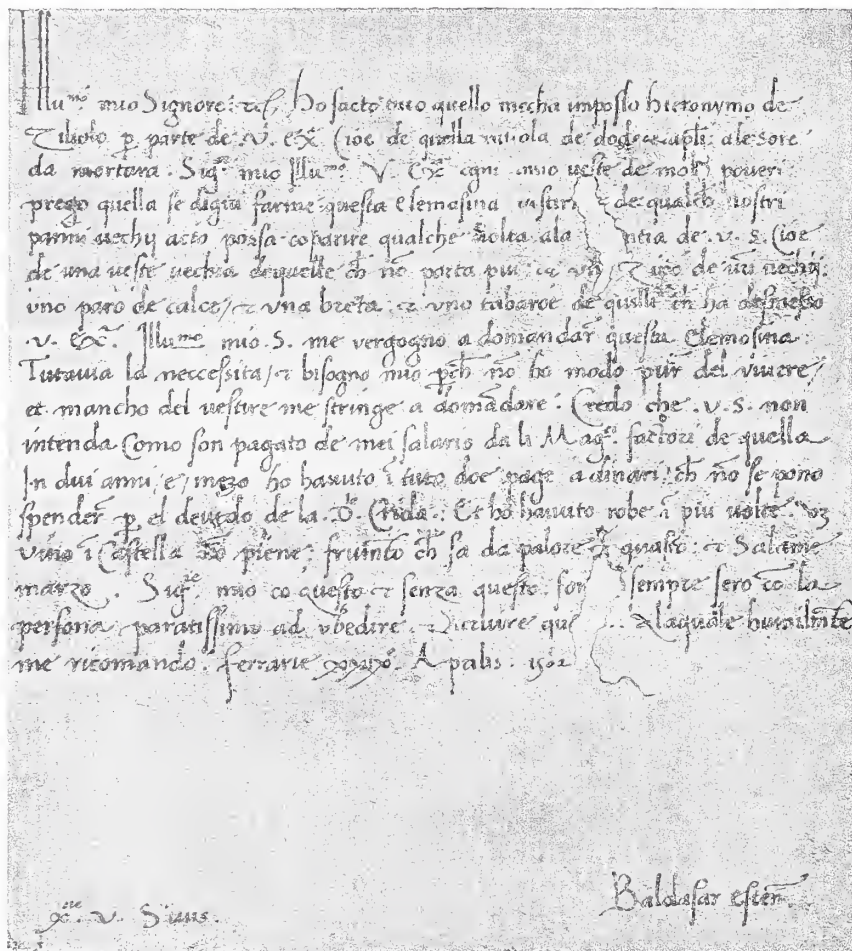 Illu.mo mio Signore: &c. Ho facto tuto quello mecha imposto hieronymo de
Ziliolo p̄ parte de .V. Ex.a Cioe de quella tavola de dodece apli: ale sore
da mortara. Sig.re mio Illu.mo V. Ex.a ogni anno veste de molti poveri
prego quella se digni farme questa elemosina vestiri de qualche vostri
panni vechij acio possa coparire qualche volta ala ntia de .v. S. Cioe
de una veste vechia de quelle ch̄ nō porta piu: & uno de vechij:
uno paro de calce/ & una breta: & uno tabaroe de quelli ch̄ ha desmesso
.V. Ex.a. Illu.mo mio .S. me vergogno a domandar questa Elemosina:
Tutavia la neccessita/ & bisogno mio p̄ch̄ nō ho modo pur del vivere/
et mancho del vestire me stringe a domādare: Credo che .v. S. non
intenda Como son pagato de mei salario da li Mag.ci factori de quella
In dui anni e/ mezo ho havuto ī tuto doe page a dinari/ ch̄ nō se pono
spender p̄ el devedo de la Crida: Et ho havuto robe ī piu volte
vino ī Castella piene: frumēto ch̄ sa da palore & guasto: & Salame
marzo. Sig.re mio cō questo & senza questo: sempre sero cō la
persona paratissimo ad vbedire & servire que alaquale humilmēte
me ricomando. ferrarie xxixo. Aprilis. 1502
Ex.tie V. S.uus.
Baldasar estēn.